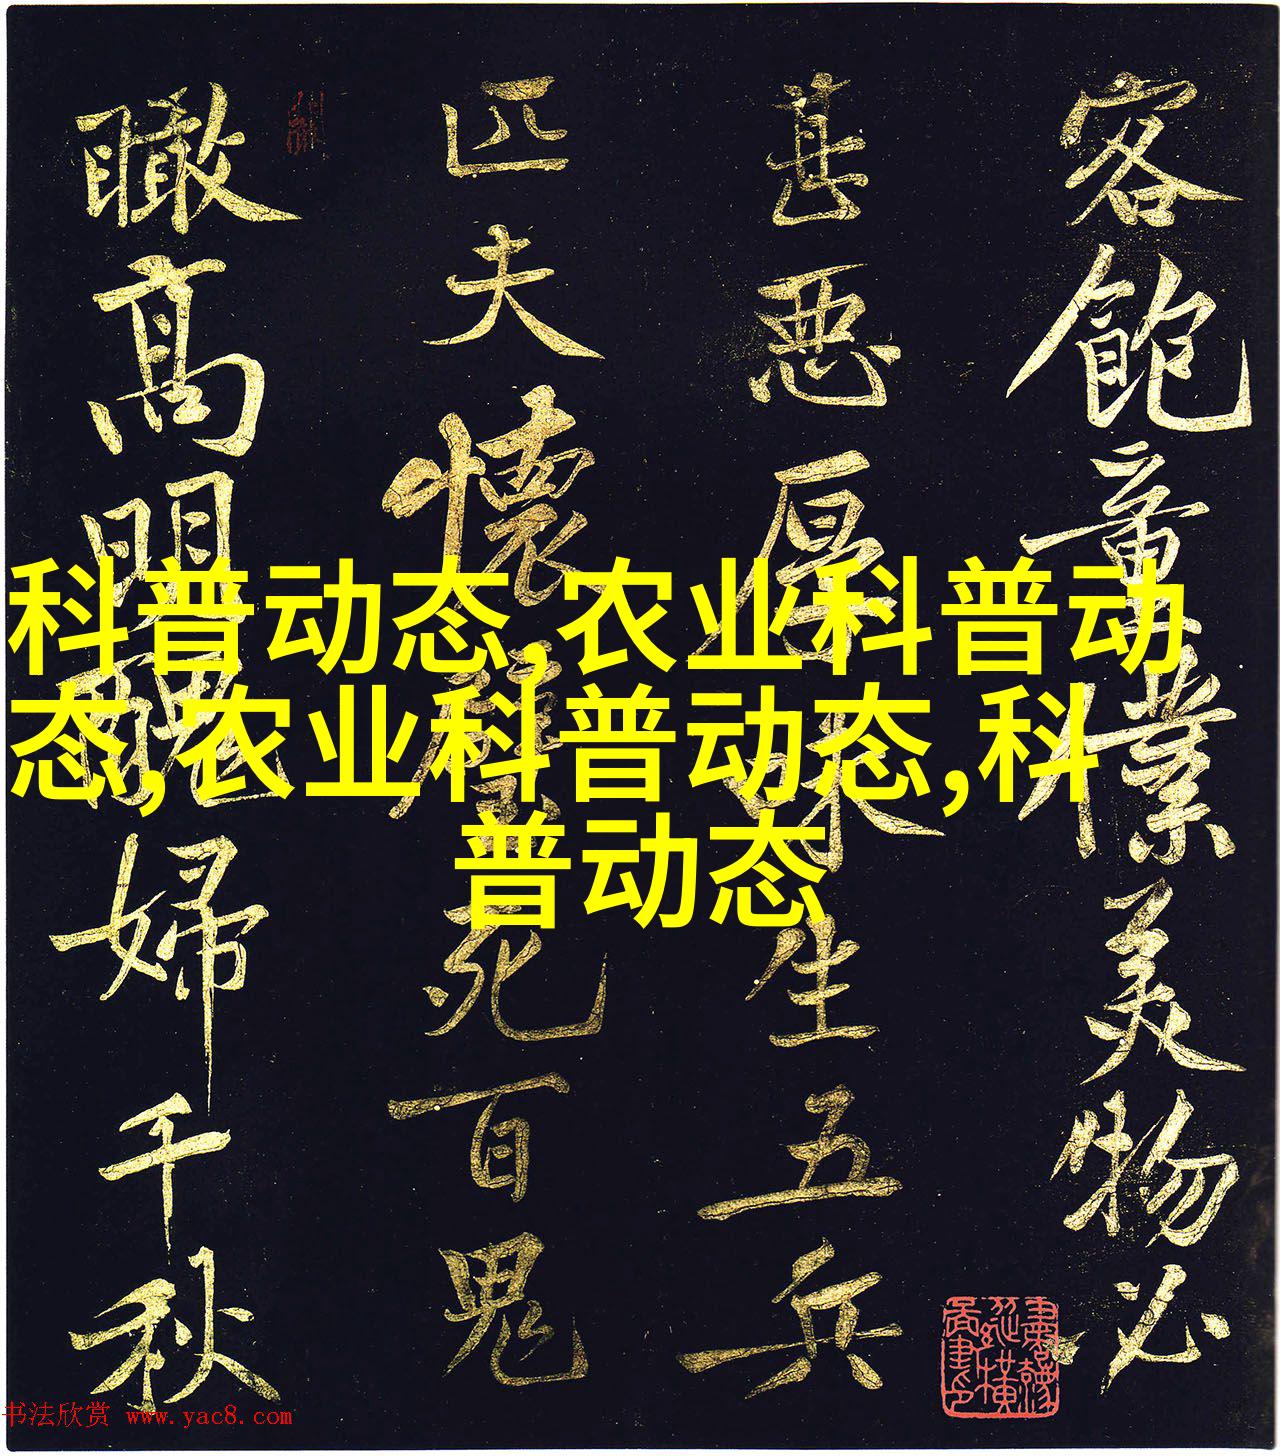 客飽童僕美物必
甚惡厚味生五兵
匹夫懷璧死百鬼
瞰高明醜婦千秋
科普动态,农业科普动
态,农业科普动态,科
普动态
书法欣赏 www.yac8.com